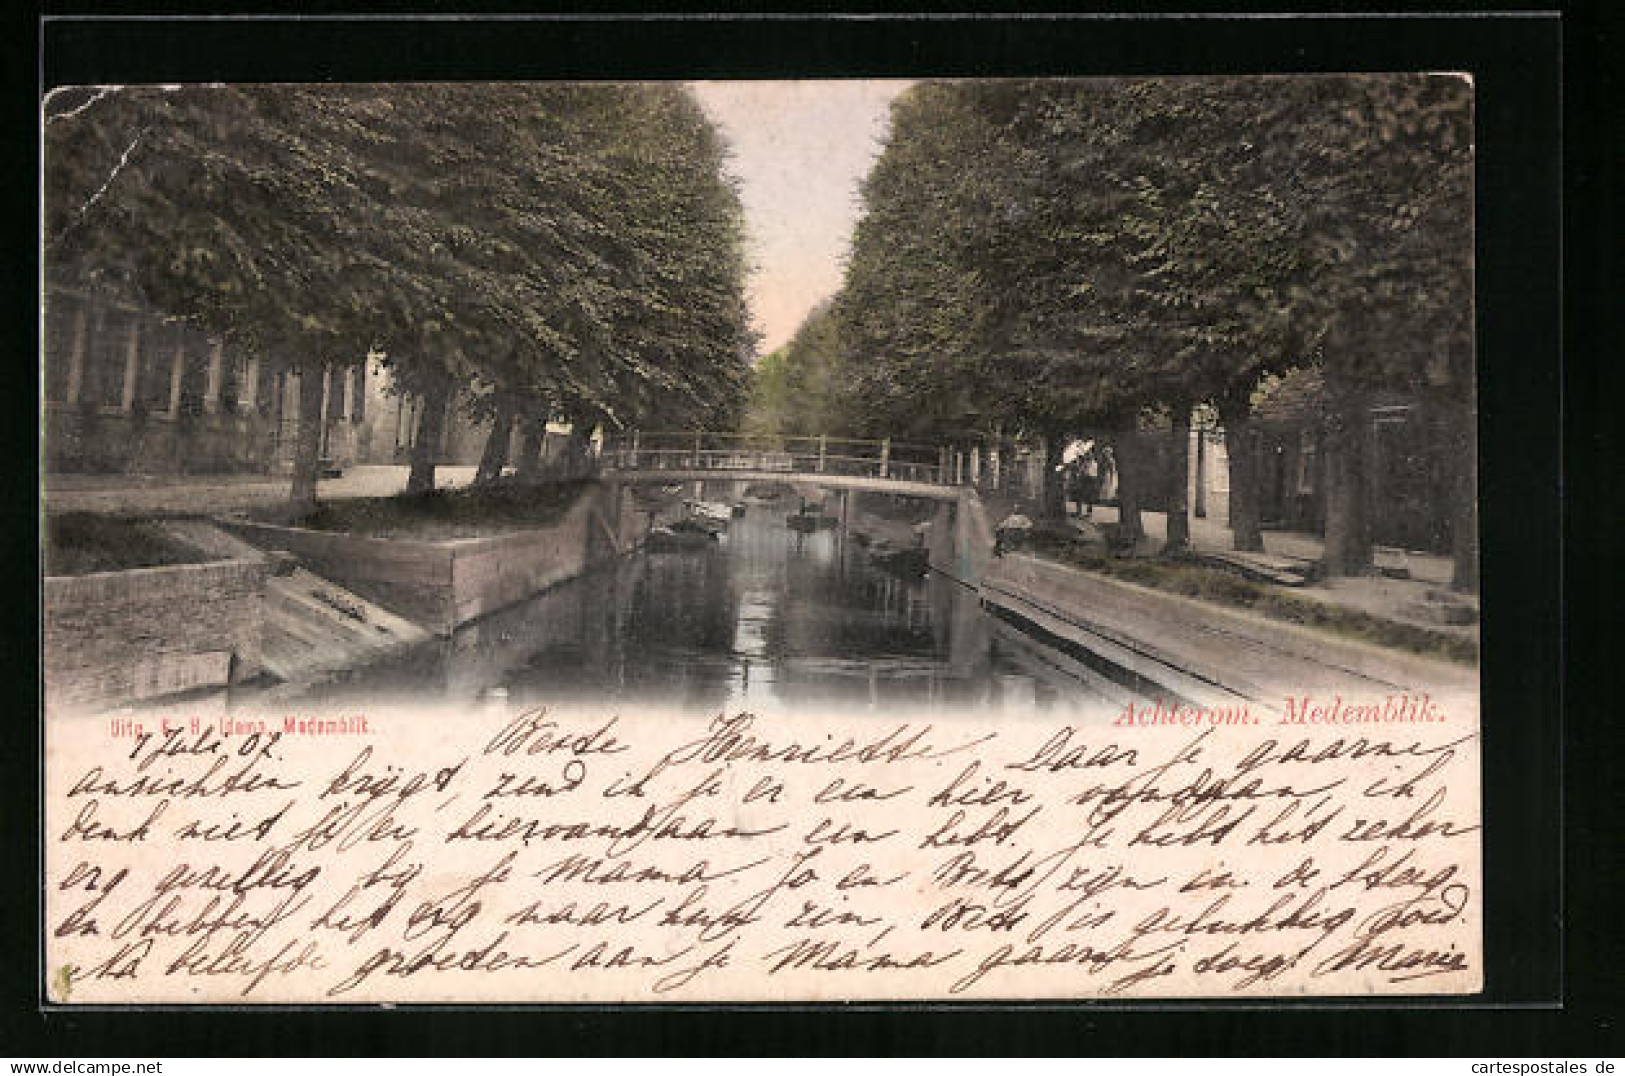 Achterom. Medemblik.
Uitg. K. H. Idema, Medemblik.
7 Juli 02. Beste Henriette. Daar je gaarne
ansichten krijgt, zend ik je er een hier vandaan, ik
denk niet je er hiervandaan een hebt. Je hebt het zeker
erg gezellig bij je Mama. Jo en Bets zijn in de
en hebben het erg naar hun zin, Bets is gelukkig goed.
Na beleefde groeten aan je Mama gaarne je Marie
cartespostales de